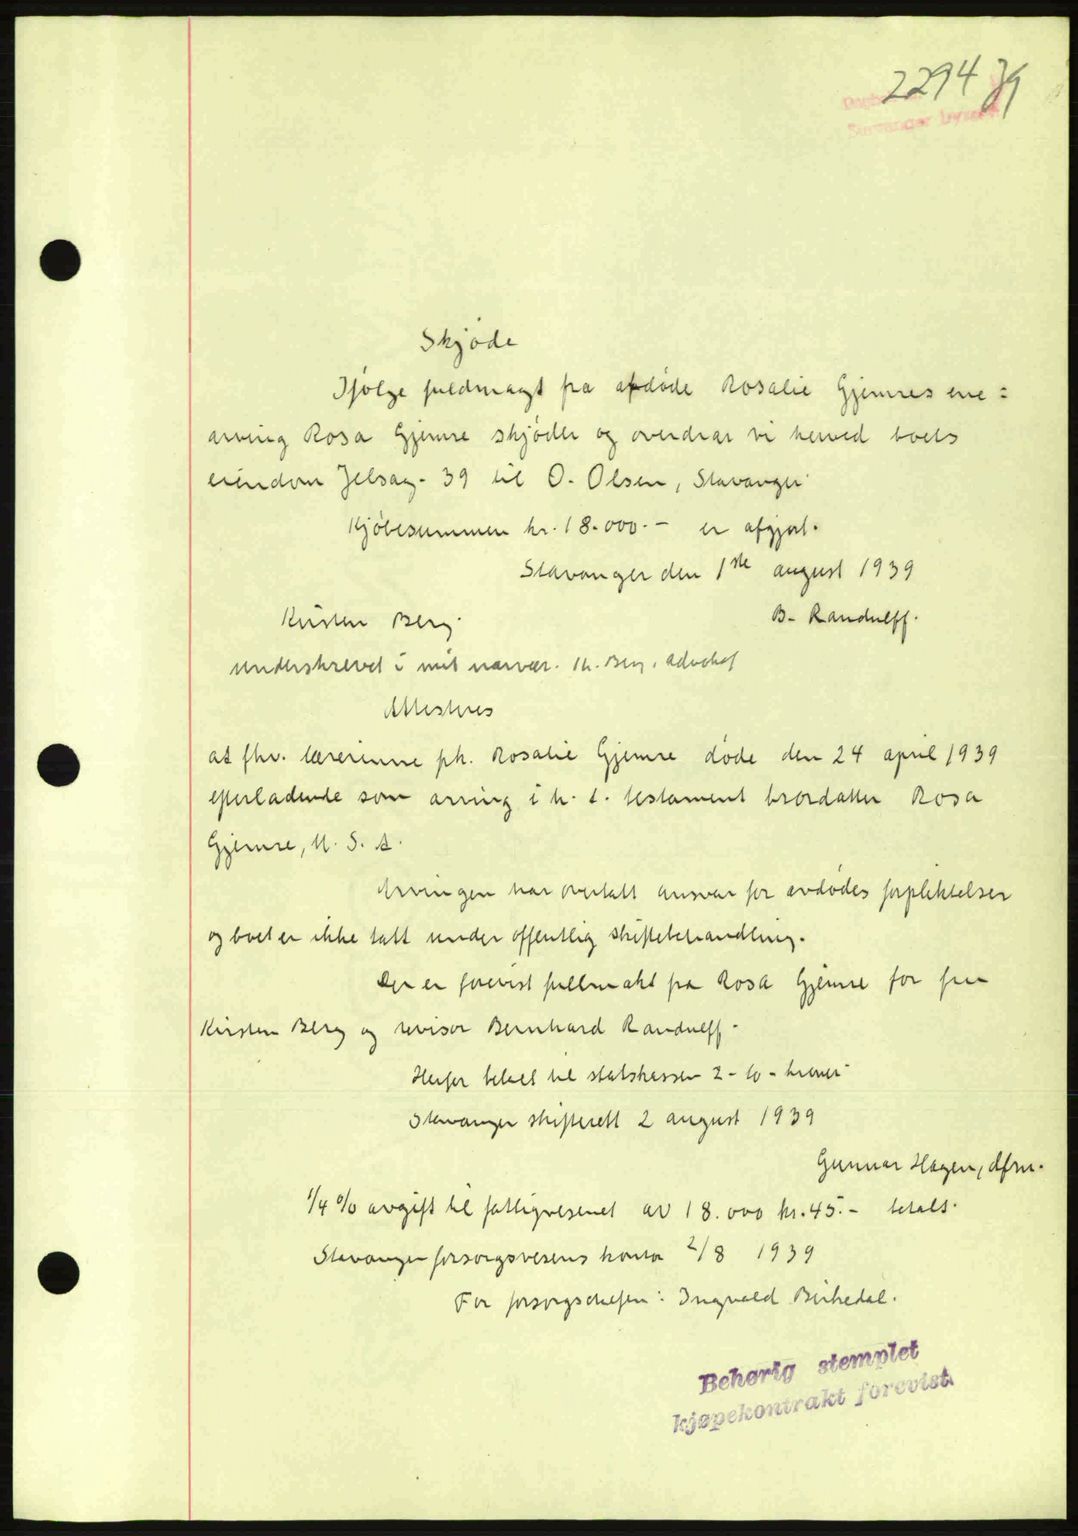 2294 39
Skjøde
Ifølge fuldmagt fra afdøde Rosalie Gjemres ene=
arving Rosa Gjemre skjøder og overdrar vi herved boets
eiendom Jelsag. 39 til O. Olsen, Stavanger
Kjøbesummen kr. 18.000.- er afgjort.
Stavanger den 1ste august 1939
Kirsten Berg. B. Randulff.
underskrevet i mit nærvær. Th. Berg, advokat
Attesteres
at fhv. lærerinne frk. Rosalie Gjemre døde den 24 april 1939
efterladende som arving i h. t. testament brordatter Rosa
Gjemre, U. S. A.
Arvingen har overtatt ansvar for avdødes forpliktelser
og boet er ikke tatt under offentlig skiftebehandling.
Der er forevist fullmakt fra Rosa Gjemre for fru
Kirsten Berg og revisor Bernhard Randulff.
Herfor betalt til statskassen 2 - to - kroner
Stavanger skifterett 2 august 1939
Gunnar Hagen, dfm.
1/4 % avgift til fattigvesenet av 18.000 kr. 45.- betalt.
Stavanger forsorgsvesens kontor 2/8 1939
For forsorgschefen: Ingvald Birkedal.
Behørig stemplet
kjøpekontrakt forevist